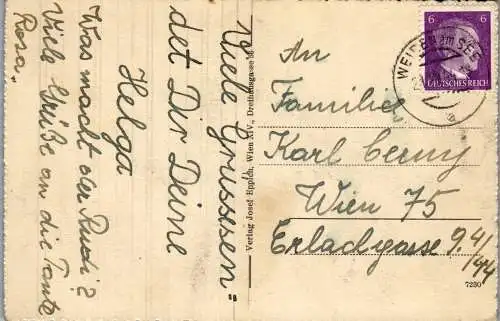 Viele Grüssesen-
det Dir Deine
Helga
Was macht der Rudi?
Viele Grüße an die Tante
Rosa.
Verlag Josef Eppich, Wien XIV., Dreihausgasse 18
An
Familie
Karl Cerny
Wien 75
Erlachgasse 94/
144
7230
6 6
DEUTSCHES REICH
WEIDEN am SEE
a